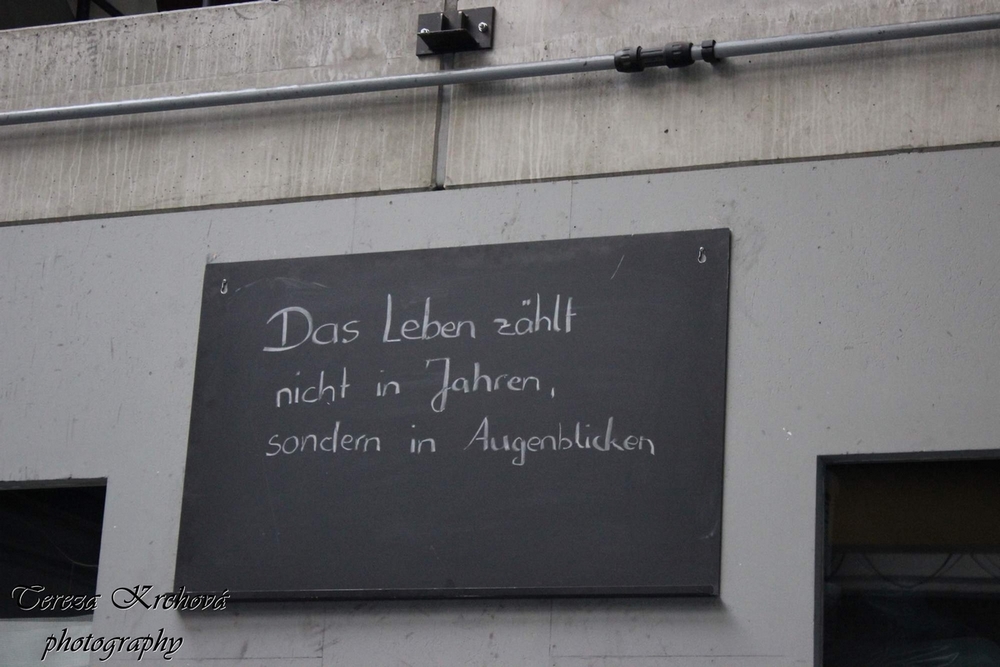 Das Leben zählt
nicht in Jahren,
sondern in Augenblicken
Tereza Krchová
photography